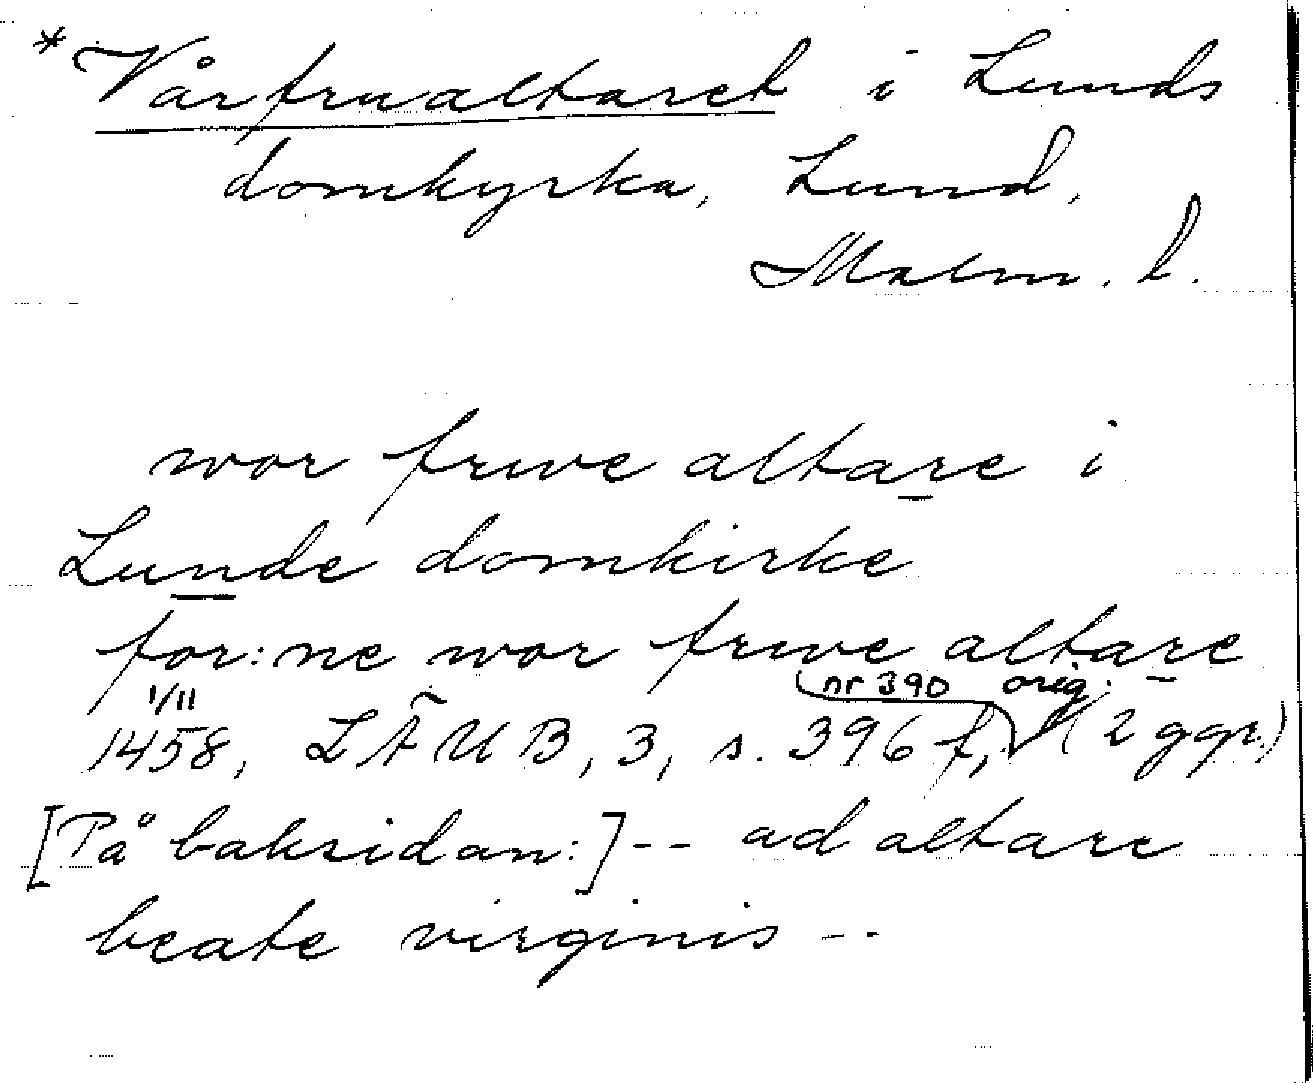 *Vårfrualtaret i Lunds
domkyrka, Lund,
Malm. l.
wor frwe altare i
Lunde domkirke
for:ne wor frwe altare
1/11 nr 390 orig.
1458, LÄUB, 3, s. 396 f, (2 ggr.)
[På baksidan:] -- ad altare
beate virginis --